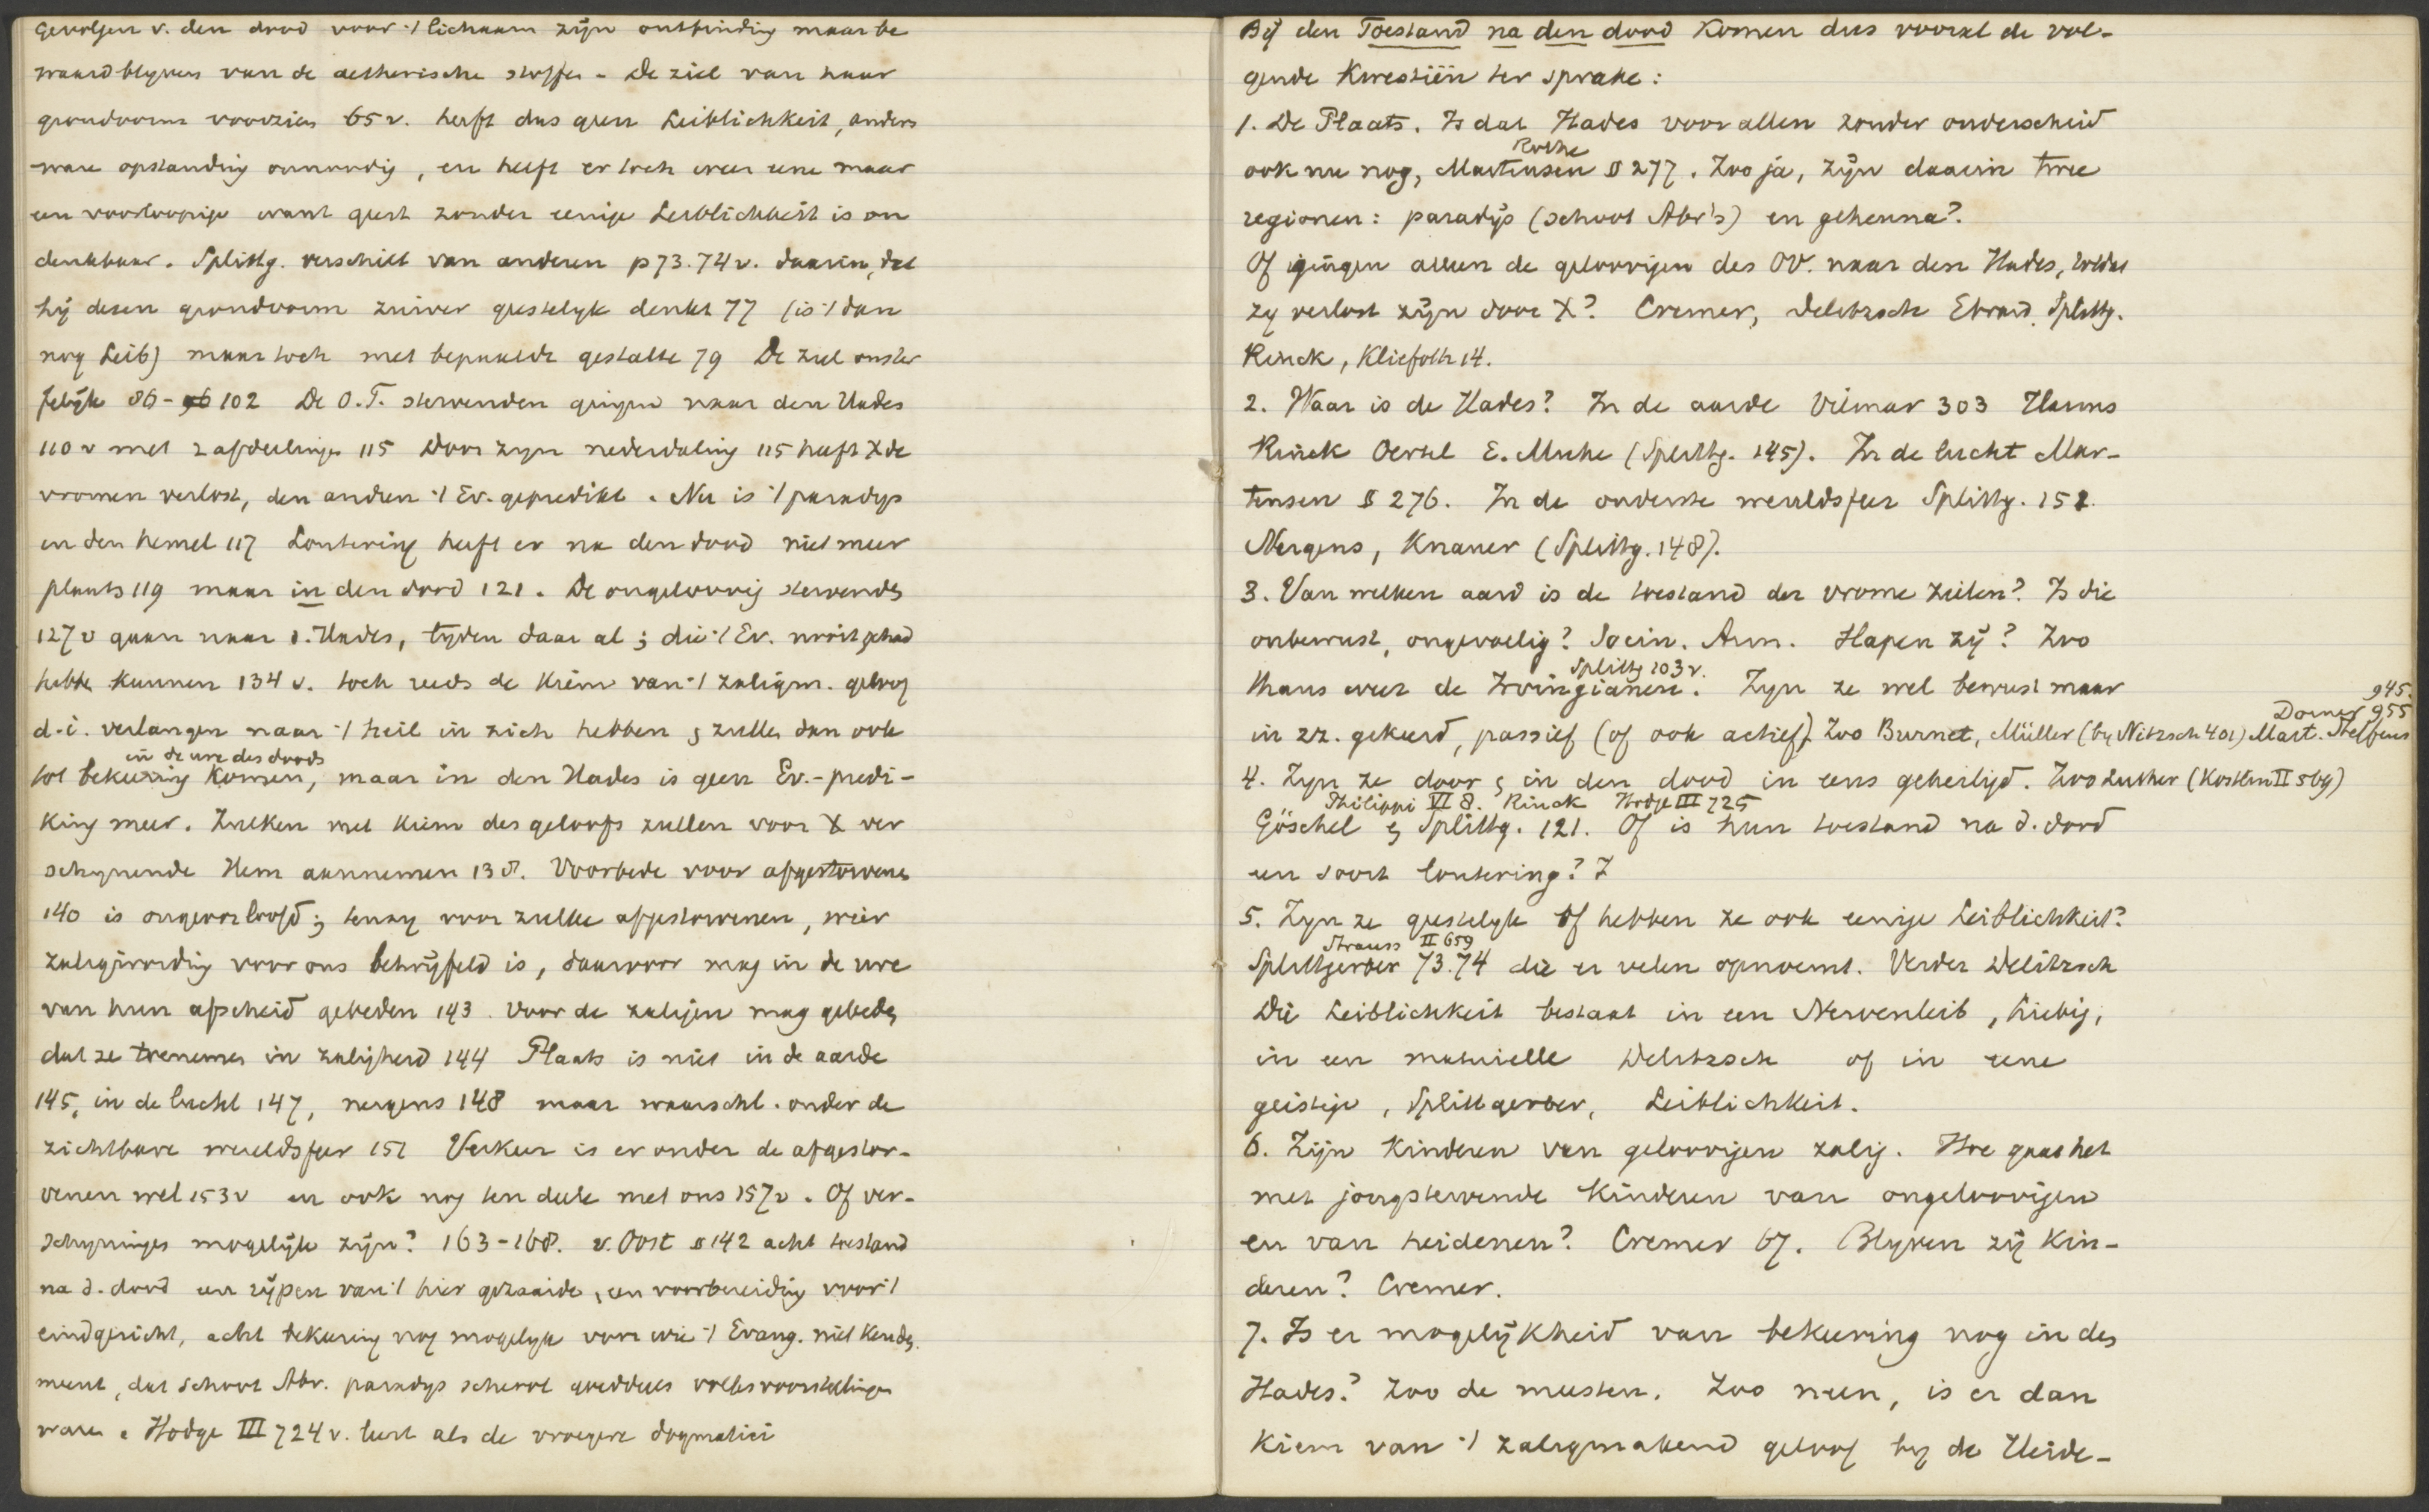 Gevolgen v. den dood voor 't lichaam zijn ontbinding maar be
waard blyven van de aetherische stoffen - De ziel van haar
grondvorm voorzien 65 v. heeft dus geen Leiblichkeit, anders
ware opstanding onnoodig, en heeft er toch weer eene maar
een voorloopige want geest zonder eenige Leiblichkeit is on
denkbaar. Splittg. verschilt van anderen p 73. 74 v. daarin, dat
hij dezen grondvorm zuiver geestelyk denkt 77 (is 't dan
nog Leib) maar toch met bepaalde gestalte 79 De ziel onster
felijk 86 - 96 102 De O.T. stervenden gingen naar den Hades
110 v met 2 afdeelingen 115 Door zyn nederdaling 115 heeft X de
vromen verlost, den andren 't Ev. gepredikt. Nu is 't paradys
in den hemel 117 Loutering heeft er na den dood niet meer
plaats 119 maar in den dood 121. De ongeloovig stervenden
127 v gaan naar d. Hades, lyden daar al; die 't Ev. nooit gehad
hebben kunnen 134 v. toch reeds de kiem van 't zaligm. geloof
d.i. verlangen naar 't heil in zich hebben & zullen dan ook
in de ure des doods
tot bekeering komen, maar in den Hades is geen Ev.-predi-
king meer. Zulken met kiem des geloofs zullen voor X ver
schynende Hem aannemen 138. Voorbede voor afgestorvenen
140 is ongeoorloofd; tenzy voor zulke afgestorvenen, wier
zaligwording voor ons betwijfeld is, daarvoor mag in de ure
van hun afscheid gebeden 143. Voor de zaligen mag gebeden
dat ze toenemen in zaligheid 144 Plaats is niet in de aarde
145, in de lucht 147, nergens 148 maar waarschl. onder de
zichtbare wereldsfeer 151 Verkeer is er onder de afgestor-
venen wel 153 v en ook nog ten deele met ons 157 v. Of ver-
schyningen mogelijk zijn? 163-168. v. Oost § 142 acht toestand
na d. dood een rijpen van 't hier gezaaide, een voorbereiding voor 't
eindgericht, acht bekeering nog mogelyk voor wie 't Evang. niet kenden.
meent, dat schoot Abr. paradys scheool goeddeels volksvoorstellingen
waren. Hodge III 724 v. leert als de vroegere dogmatici
Bij den Toestand na den dood komen dus vooral de vol-
gende kwestiën ter sprake:
1. De Plaats. Is dat Hades voor allen zonder onderscheid
Rothe
ook nu nog, Martensen § 277. Zoo ja, zijn daarin twee
regionen: paradijs (schoot Abr's) en gehenna?
Of gingen alleen de geloovigen des OV. naar den Hades, totdat
zy verlost zijn door X? Cremer, Delitzsch Ebrard. Splittg.
Rinck, Kliefoth 14.
2. Waar is de Hades? In de aarde Vilmar 303 Harms
Rinck Oertel E. Muhe (Splittg. 145). In de lucht Mar-
tensen § 276. In de onderste wereldsfeer Splittg. 151.
Nergens, Knauer (Splittg. 148).
3. Van welken aard is de toestand der vrome zielen? Is die
onbewust, ongevoelig? Socin. Arm. Slapen zij? Zoo
Splittg 103 v.
thans weer de Irvingianen. Zyn ze wel bewust maar
945.
Dorner 955
in zz. gekeerd, passief (of ook actief). Zoo Burnet, Müller (by Nitzsch 401) Mart. Steffens
4. Zyn ze door & in den dood in eens geheiligd. Zoo Luther (Kostlin II 569)
Philippi VI 8. Rinck Hodge III 725
Göschel & Splittg. 121. Of is hun toestand na d. dood
een soort loutering? Z
5. Zyn ze geestelyk of hebben ze ook eenige Leiblichkeit?
Strauss II 659
Splittgerber 73.74 die er velen opnoemt. Verder Delitzsch
Die Leiblichkeit bestaat in een Nervenleib,
in een materielle Delitzsch of in eene
geistige, Splittgerber, Leiblichkeit.
6. Zijn kinderen van geloovigen zalig. Hoe gaat het
met jongstervende kinderen van ongeloovigen
en van heidenen? Cremer 67. Blyven zij kin-
deren? Cremer.
7. Is er mogelijkheid van bekeering nog in den
Hades? Zoo de meesten. Zoo neen, is er dan
kiem van 't zaligmakend geloof by de Heide-